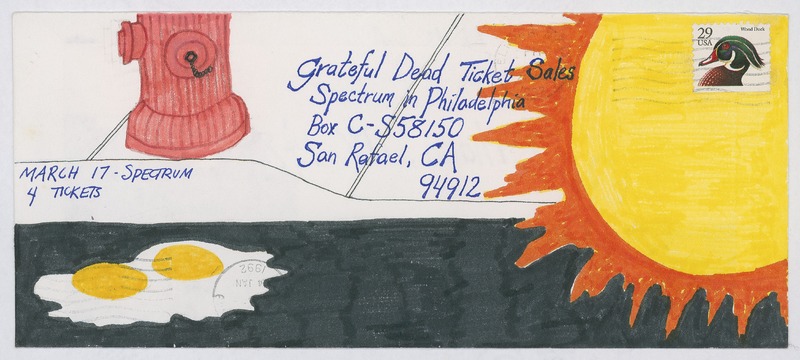 29
USA
Wood Duck
Grateful Dead Ticket Sales
Spectrum in Philadelphia
Box C-S58150
San Rafael, CA
94912
MARCH 17 - SPECTRUM
4 TICKETS
JAN
1992